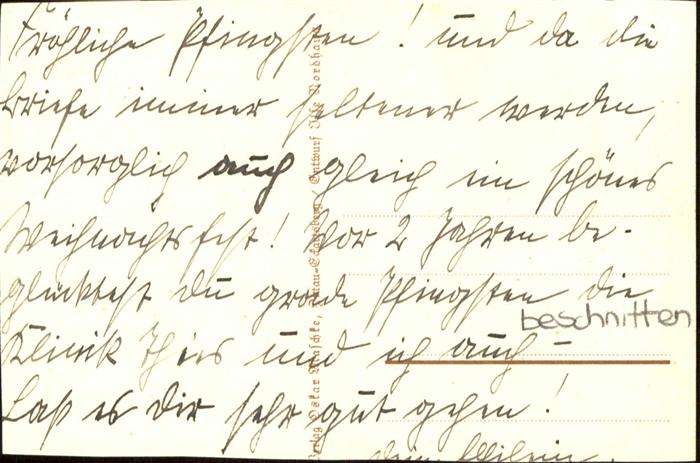 Fröhliche Pfingsten! und da die
Briefe immer seltener werden,
vorsorglich auch gleich ein schönes
Weihnachtsfest! Vor 2 Jahren be-
glücktest du grade Pfingsten die
beschnitten
Klinik Thies und ich auch -
Laß es dir sehr gut gehen!
Dein
Verlag Oskar Entwurf Ilse